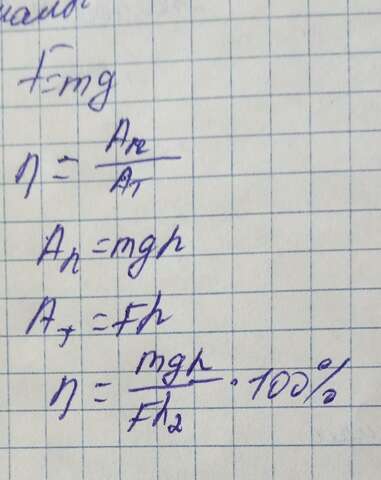 F=mg
η = Aп/Aт
Aп=mgh
Aт=Fh
η = mgh/Fh₂ · 100%